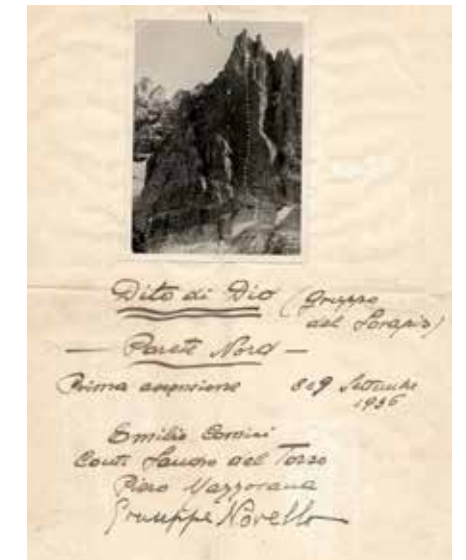 Dito di Dio (Gruppo
del Sorapis)
— Parete Nord —
Prima ascensione 8 e 9 Settembre
1936
Emilio Comici
Conte Sandro del Torso
Piero Mazzorana
Giuseppe Novello